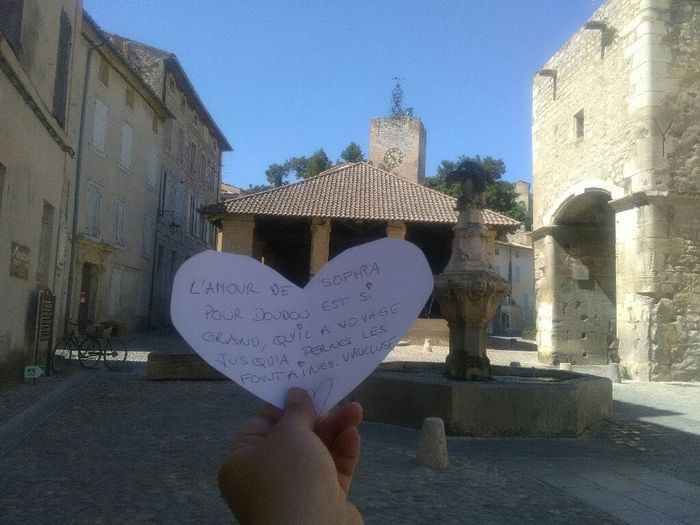 L'AMOUR DE SOPHIA
POUR DOUDOU EST SI
GRAND, QU'IL A VOYAGÉ
JUSQU'A PERNES LES
FONTAINES-VAUCLUSE